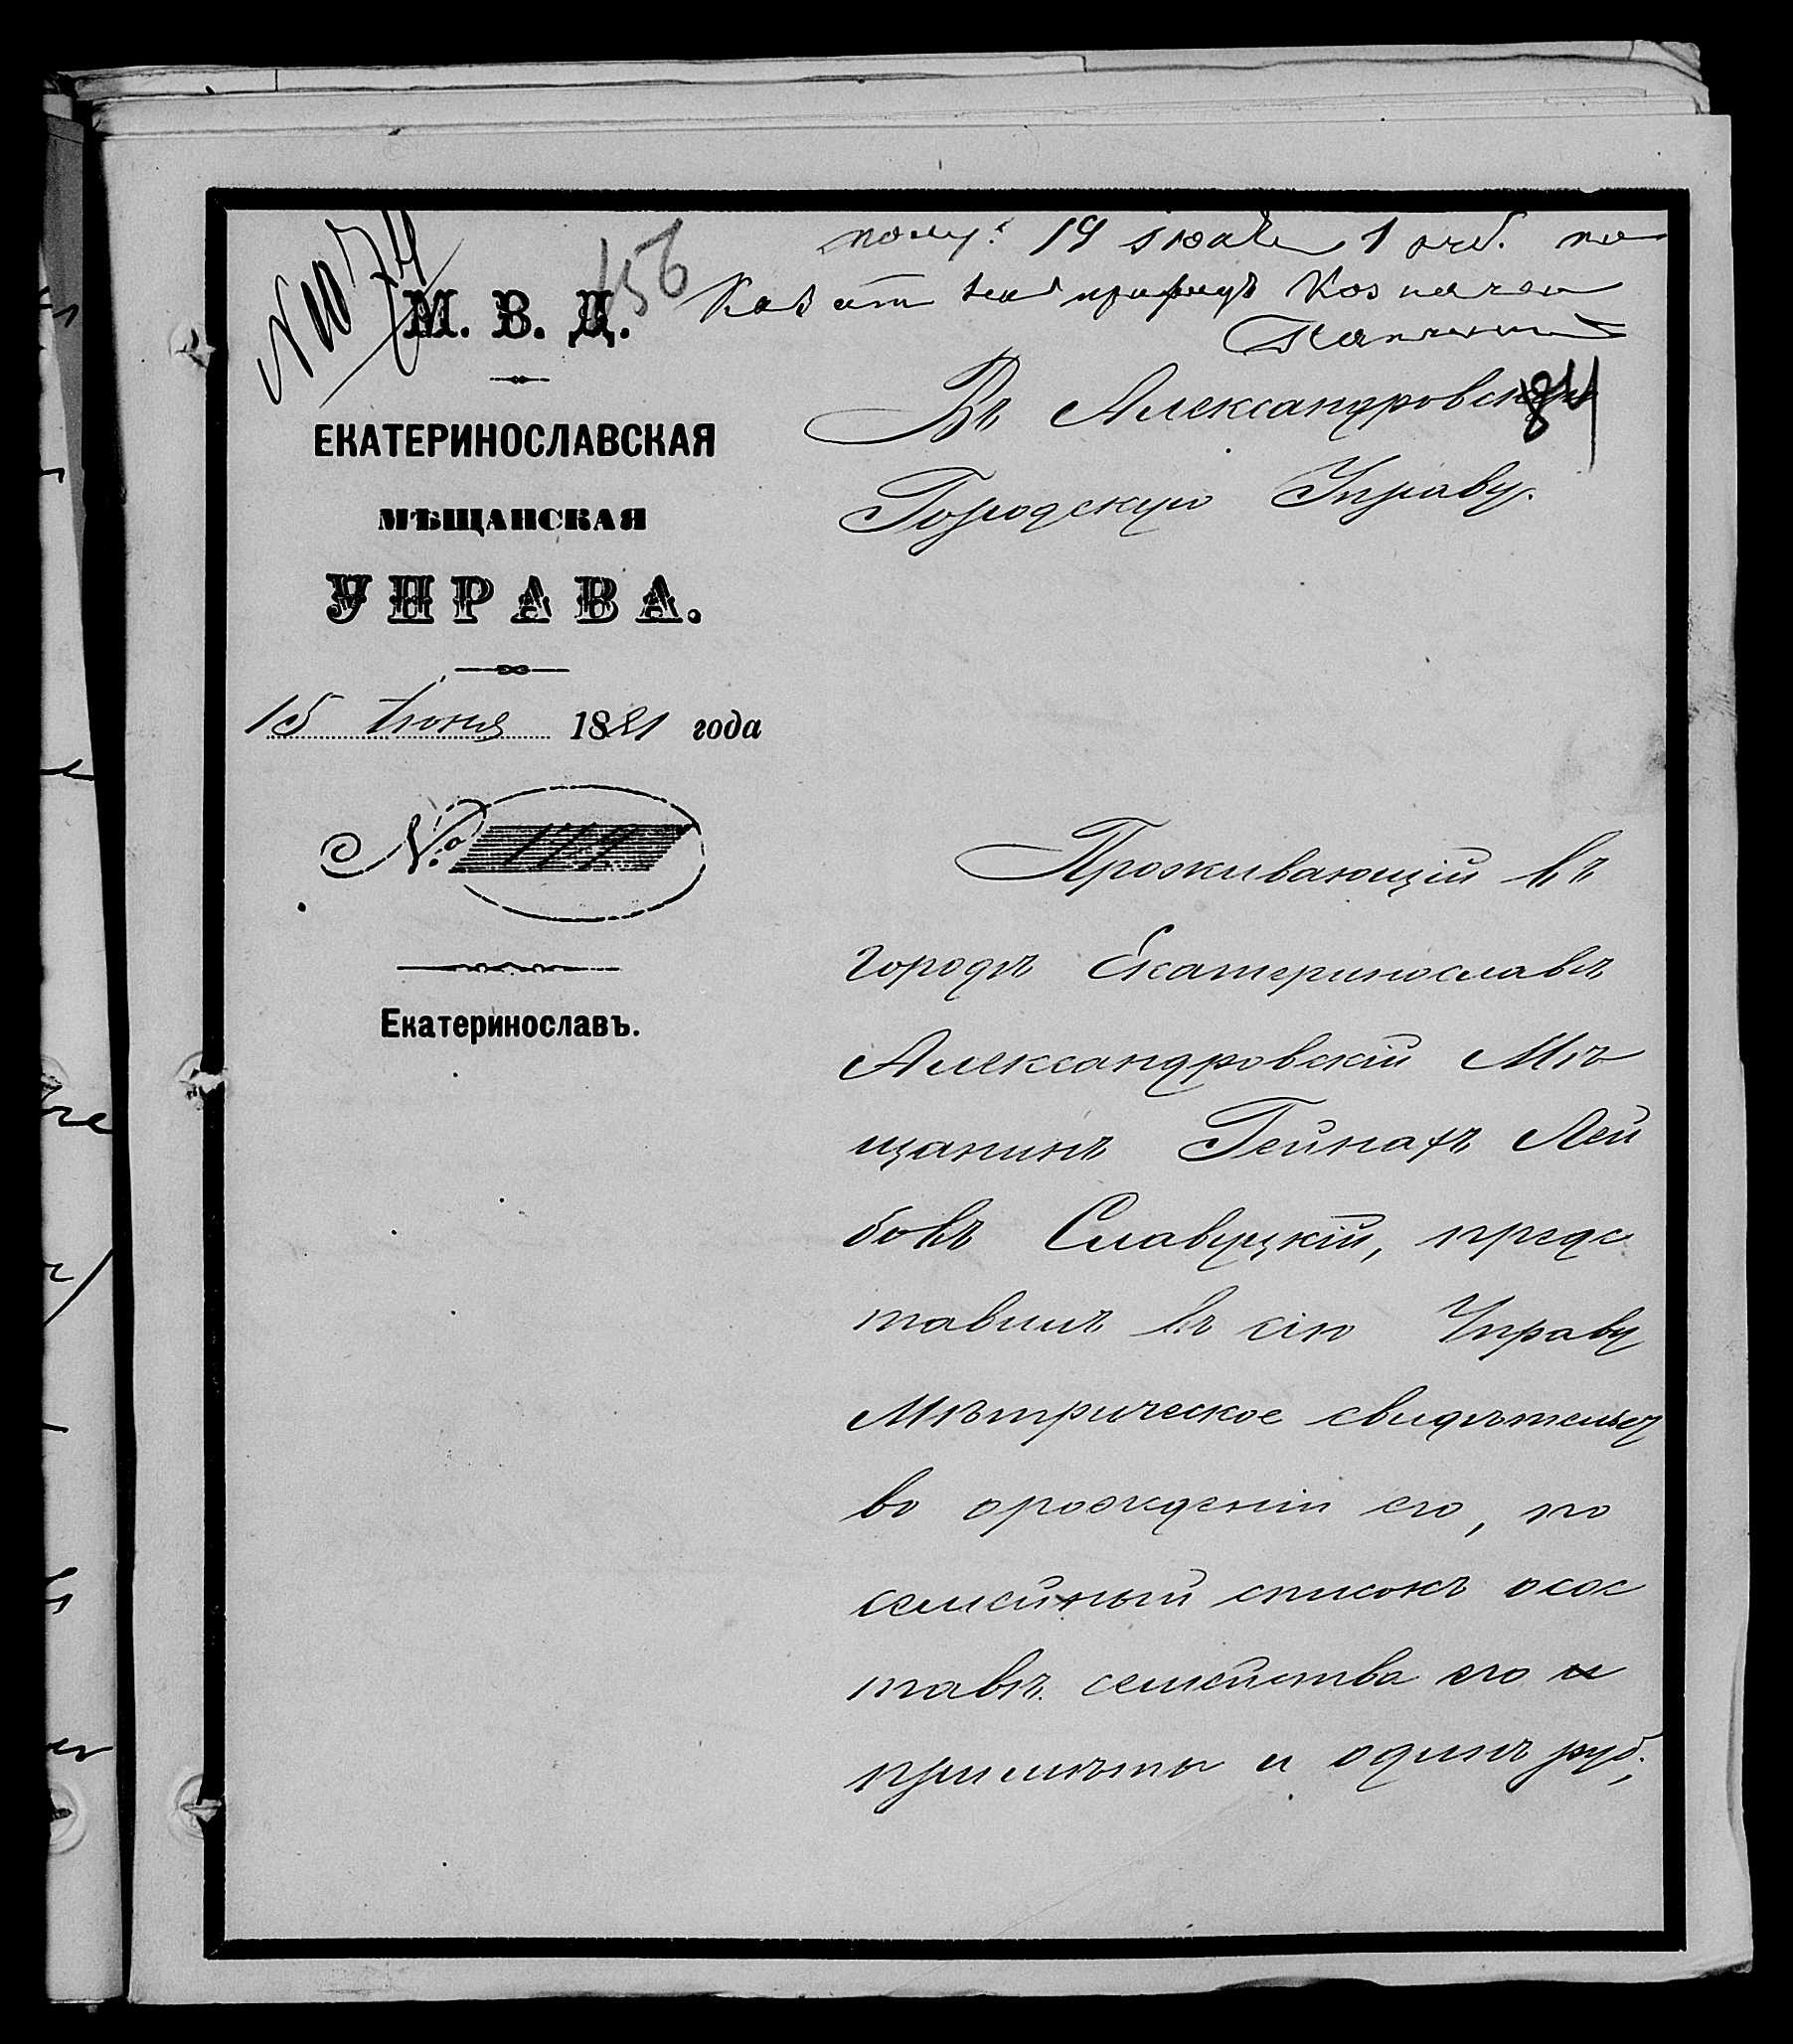 № 1074
156
полу. 19 Июля 1 руб. по
Казначей
М. В. Д.
ЕКАТЕРИНОСЛАВСКАЯ
МѢЩАНСКАЯ
УПРАВА.
15 Іюня 1881 года
№
Екатеринославъ.
84
Въ Александровскую
Городскую Управу.
Проживающій въ
городѣ Екатеринославѣ
Александровскій Мѣ
щанинъ Гейнахъ Лей
бовъ Славуцкій, предс
тавилъ въ сію Управу
Мѣтрическое свидѣтельст
во орожденіи его, по
семейный списокъ осос
тавѣ семейства его и
примѣты и одинъ руб.,